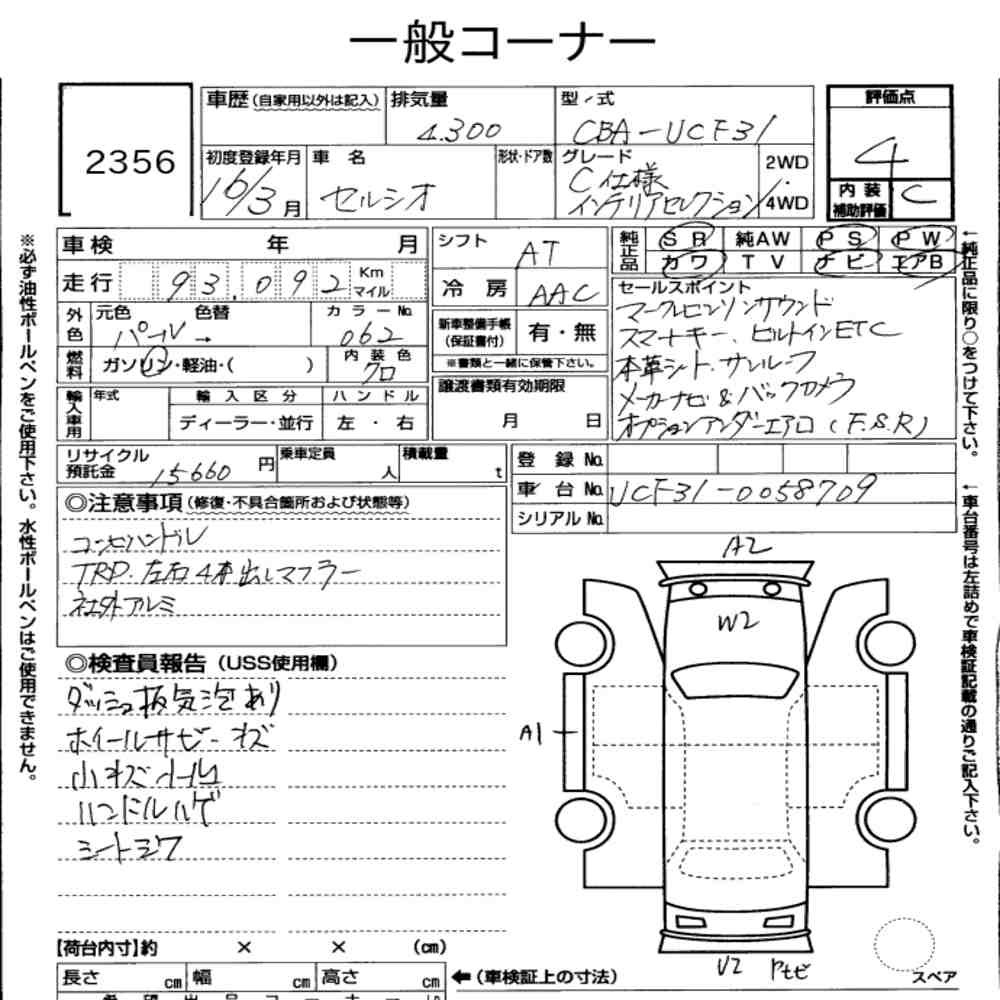 一般コーナー
2356
車歴(自家用以外は記入)
排気量
4.300
型/式
CBA-UCF31
評価点
4
内装補助評価
C
初度登録年月
16/3月
車名
セルシオ
形状・ドア数
グレード
C仕様
インテリアセレクション
2WD
4WD
※必ず油性ボールペンをご使用下さい。水性ボールペンはご使用できません。
車検 年 月
走行 93.092 Km マイル
外色
元色 色替
パール→
カラーNo.
062
燃料
ガソリン・軽油・( )
内装色
クロ
輸入車用
年式
輸入区分
ハンドル
ディーラー・並行
左・右
シフト
AT
冷房
AAC
新車整備手帳(保証書付)
有・無
※書類と一緒に保管下さい。
譲渡書類有効期限
月 日
純正品
SR 純AW PS PW
カワ TV ナビ エアB
セールスポイント
マークレビンソンサウンド
スマートキー、ビルトインETC
本革シート・サンルーフ
メーカーナビ&バックカメラ
オプションアンダーエアロ(F.S.R)
←純正品に限り○をつけて下さい。
←車台番号は左詰めで車検証記載の通りご記入下さい。
リサイクル預託金
15660円
乗車定員
人
積載量
t
登録No.
車台No. UCF31-0058709
シリアルNo.
◎注意事項(修復・不具合箇所および状態等)
コンビハンドル
TRD.左右4本出しマフラー
社外アルミ
◎検査員報告(USS使用欄)
ダッシュ板気泡あり
ホイールサビーキズ
小キズ小凹
ハンドルハゲ
シートシワ
A2
W2
A1
U2
スペア
【荷台内寸】約 × × (cm)
長さ cm 幅 cm 高さ cm
←(車検証上の寸法)